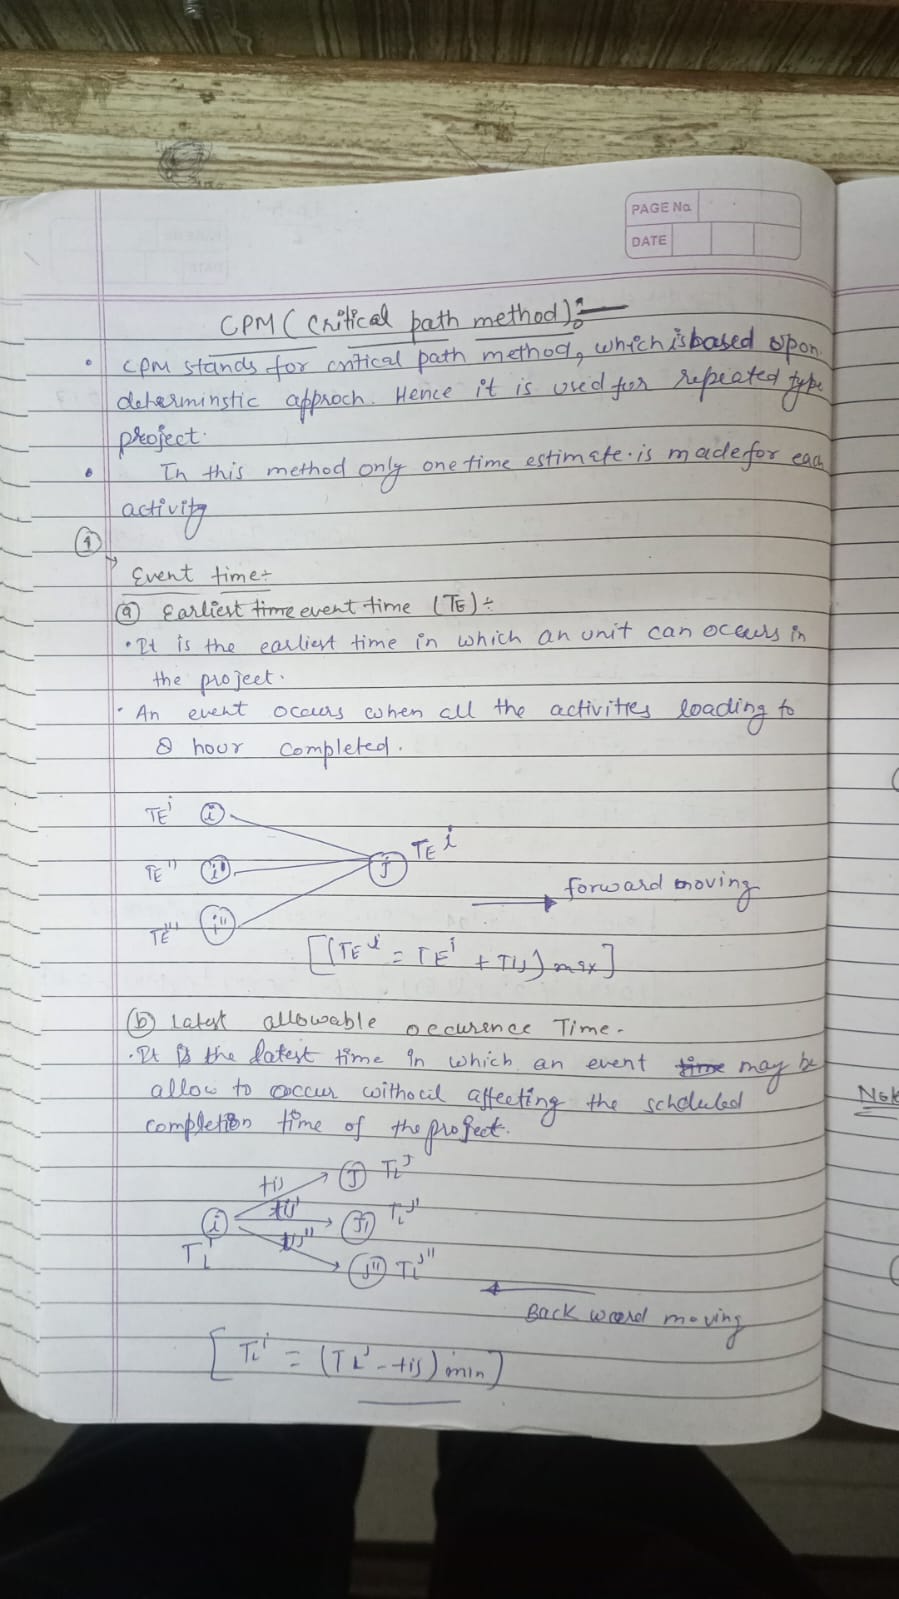 PAGE No.
DATE
CPM (Critical path method):-
• CPM stands for critical path method, which is based upon
determinstic approch. Hence it is used for repeated type
project.
• In this method only one time estimate is made for each
activity
①
Event time÷
ⓐ Earliest time event time (TE)÷
• It is the earliest time in which an unit can occurs in
the project.
• An event occurs when all the activities loading to
hour completed.
TE' i
TE i
TE'' i'
j
forward moving
TE''' i''
[(TE = TE + Tij) max]
ⓑ Latest allowable occurence Time.
• It is the latest time in which an event time may be
allow to occur without affecting the scheduled
completion time of the project.
Note
tij J TLJ
i tij' J1 TLJ'
TL tij'' J'' TLJ''
Back word moving
[TLi = (TLJ - tij) min]